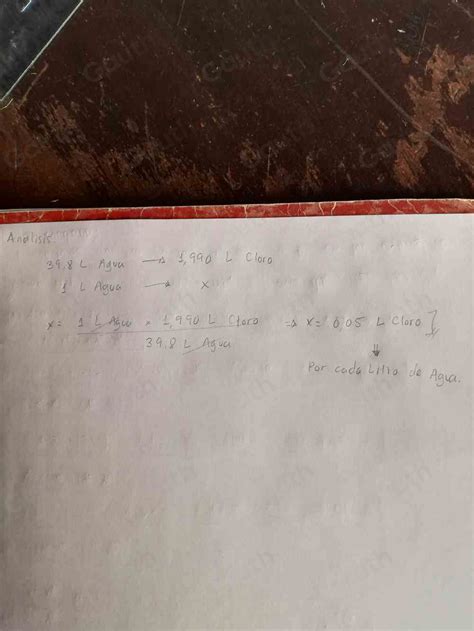 Análisis:
39,8 L Agua → 1,990 L Cloro
1 L Agua → x
x = 1 L Agua * 1,990 L Cloro → x = 0,05 L Cloro }
39,8 L Agua ⇓
Por cada Litro de Agua.